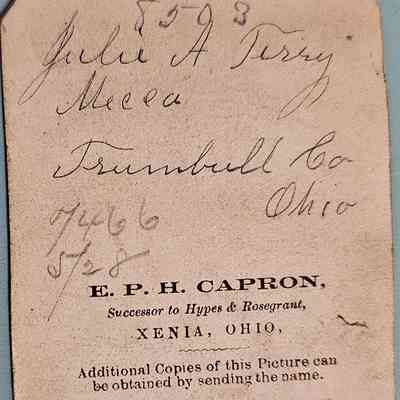 8503
Julie A Terry
Mecca
Trumbull Co
Ohio
7466
5/28
E. P. H. CAPRON,
Successor to Hypes & Rosegrant,
XENIA, OHIO,
Additional Copies of this Picture can
be obtained by sending the name.